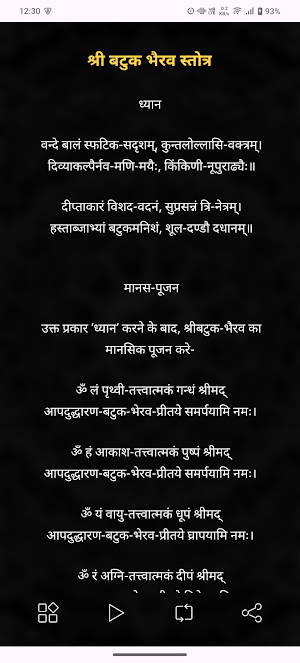 12:30
0.2
KB/s
93%
श्री बटुक भैरव स्तोत्र
ध्यान
वन्दे बालं स्फटिक-सदृशम्, कुन्तलोल्लासि-वक्त्रम्।
दिव्याकल्पैर्नव-मणि-मयैः, किंकिणी-नूपुराढ्यैः॥
दीप्ताकारं विशद-वदनं, सुप्रसन्नं त्रि-नेत्रम्।
हस्ताब्जाभ्यां बटुकमनिशं, शूल-दण्डौ दधानम्॥
मानस-पूजन
उक्त प्रकार ‘ध्यान’ करने के बाद, श्रीबटुक-भैरव का
मानसिक पूजन करे-
ॐ लं पृथ्वी-तत्त्वात्मकं गन्धं श्रीमद्
आपदुद्धारण-बटुक-भेरव-प्रीतये समर्पयामि नमः।
ॐ हं आकाश-तत्त्वात्मकं पुष्पं श्रीमद्
आपदुद्धारण-बटुक-भेरव-प्रीतये समर्पयामि नमः।
ॐ यं वायु-तत्त्वात्मकं धूपं श्रीमद्
आपदुद्धारण-बटुक-भेरव-प्रीतये घ्रापयामि नमः।
ॐ रं अग्नि-तत्त्वात्मकं दीपं श्रीमद्